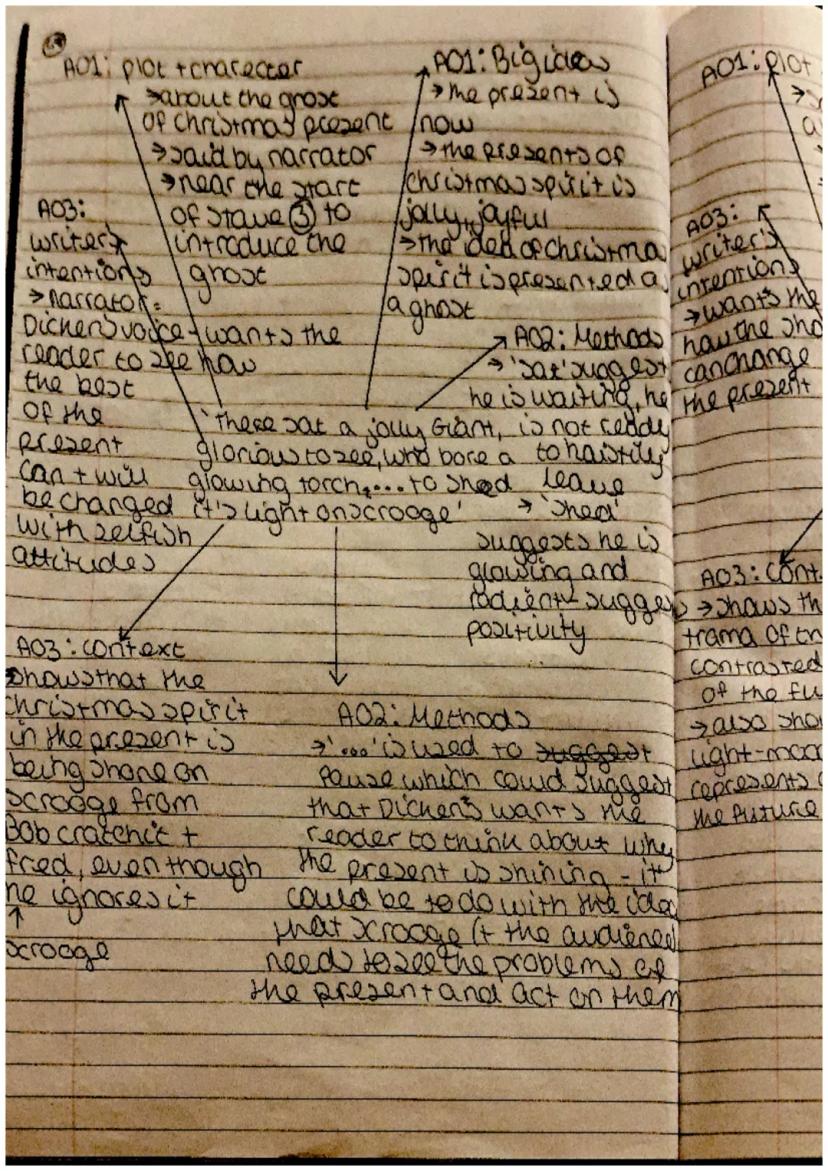 AO1: plot + character
→ about the ghost
of christmas present
→ said by narrator
→ near the start
of stave ③ to
introduce the
ghost
AO1: Big ideas
→ the present is
now
→ the presents of
christmas spirit is
jolly, joyful
→ the idea of christma
spirit is presented a
a ghost
AO3:
writer's
intentions
→ narrator =
Dicken's voice - wants the
reader to see how
the best
of the
present
can + will
be changed
with selfish
attitudes
AO2: Methods
→ 'sat' suggest
he is waiting, he
is not ready
to hastily
leave
→ 'shed'
suggests he is
glowing and
radient - sugges
positivity
'There sat a jolly Giant,
glorious to see, who bore a
glowing torch,... to shed
it's light on scrooge'
AO3: context
shows that the
christmas spirit
in the present is
being shone on
scrooge from
Bob cratchit +
fred, even though
he ignores it
↑
scrooge
AO2: Methods
→ '...' is used to suggest
pause which could suggest
that Dicken's wants the
reader to think about why
the present is shining - it
could be to do with the idea
that scrooge (+ the audience)
needs to see the problems of
the present and act on them
AO1: plot
AO3:
writer's
intentions
→ wants the
how the sho
can change
the present
AO3: cont
→ shows th
trama of th
contrasted
of the fu
→ also sho
light-moo
represents
the future